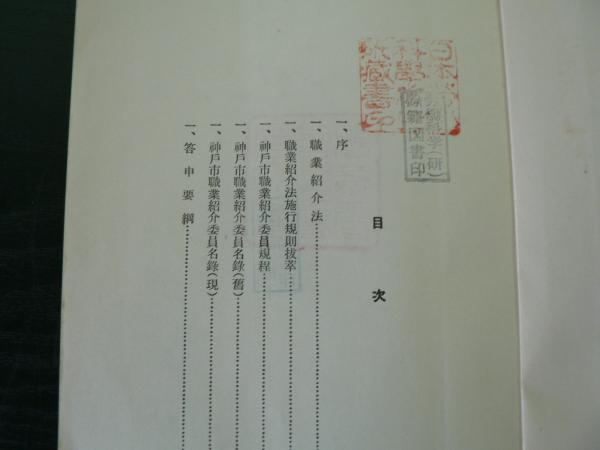 目次
一、序
一、職業紹介法
一、職業紹介法施行規則拔萃
一、神戶市職業紹介委員規程
一、神戶市職業紹介委員名錄(舊)
一、神戶市職業紹介委員名錄(現)
一、答申要綱